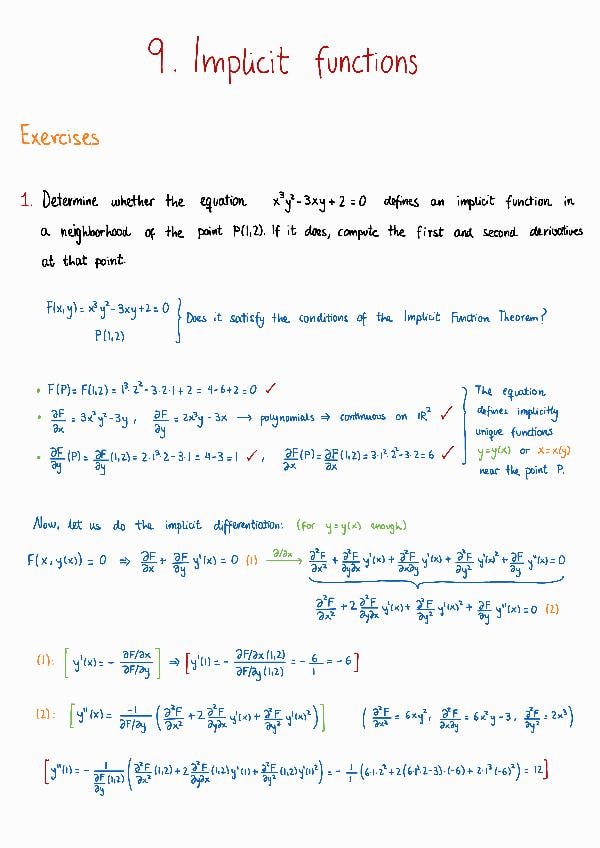 9. Implicit functions
Exercises
1. Determine whether the equation x³y²-3xy+2=0 defines an implicit function in
a neighborhood of the point P(1,2). If it does, compute the first and second derivatives
at that point.
F(x,y)=x³y²-3xy+2=0 } Does it satisfy the conditions of the Implicit Function Theorem?
P(1,2)
• F(P)=F(1,2)=1³·2²-3·2·1+2=4-6+2=0 ✓
• ∂F/∂x=3x²y²-3y, ∂F/∂y=2x³y-3x → polynomials ⇒ continuous on ℝ² ✓
• ∂F/∂y(P)=∂F/∂y(1,2)=2·1³·2-3·1=4-3=1 ✓, ∂F/∂x(P)=∂F/∂x(1,2)=3·1²·2²-3·2=6 ✓
The equation
defines implicitly
unique functions
y=y(x) or x=x(y)
near the point P.
Now, let us do the implicit differentiation: (for y=y(x) enough)
F(x,y(x))=0 ⇒ ∂F/∂x+∂F/∂y y'(x)=0 (1) →∂/∂x ∂²F/∂x²+∂²F/∂y∂x y'(x)+∂²F/∂x∂y y'(x)+∂²F/∂y² y'(x)²+∂F/∂y y''(x)=0
∂²F/∂x²+2 ∂²F/∂y∂x y'(x)+∂²F/∂y² y'(x)²+∂F/∂y y''(x)=0 (2)
(1): [y'(x)=-(∂F/∂x)/(∂F/∂y)] ⇒ [y'(1)=-(∂F/∂x(1,2))/(∂F/∂y(1,2))=-6/1=-6]
(2): [y''(x)=-1/(∂F/∂y)(∂²F/∂x²+2 ∂²F/∂y∂x y'(x)+∂²F/∂y² y'(x)²)] (∂²F/∂x²=6xy², ∂²F/∂x∂y=6x²y-3, ∂²F/∂y²=2x³)
[y''(1)=-1/(∂F/∂y(1,2))(∂²F/∂x²(1,2)+2 ∂²F/∂y∂x(1,2)y'(1)+∂²F/∂y²(1,2)y'(1)²)=-1/1(6·1·2²+2(6·1²·2-3)·(-6)+2·1³(-6)²)=12]